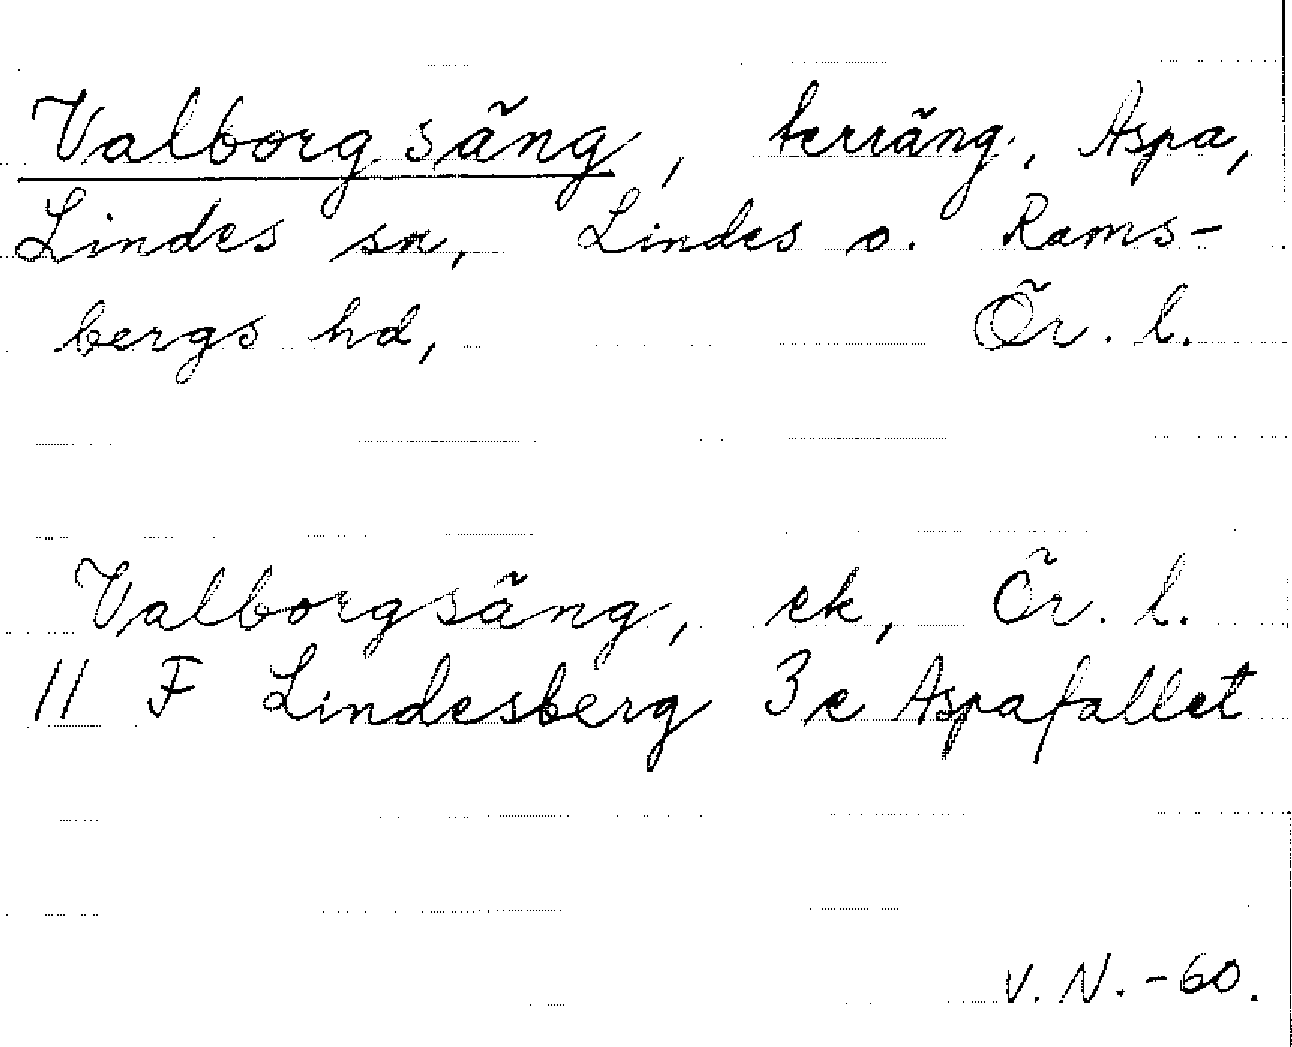 Valborgsäng, terräng, Aspa,
Lindes sn, Lindes o. Rams-
bergs hd, Ör. l.
Valborgsäng, ek, Ör. l.
11 F Lindesberg 3e Aspafallet
V. N. -60.